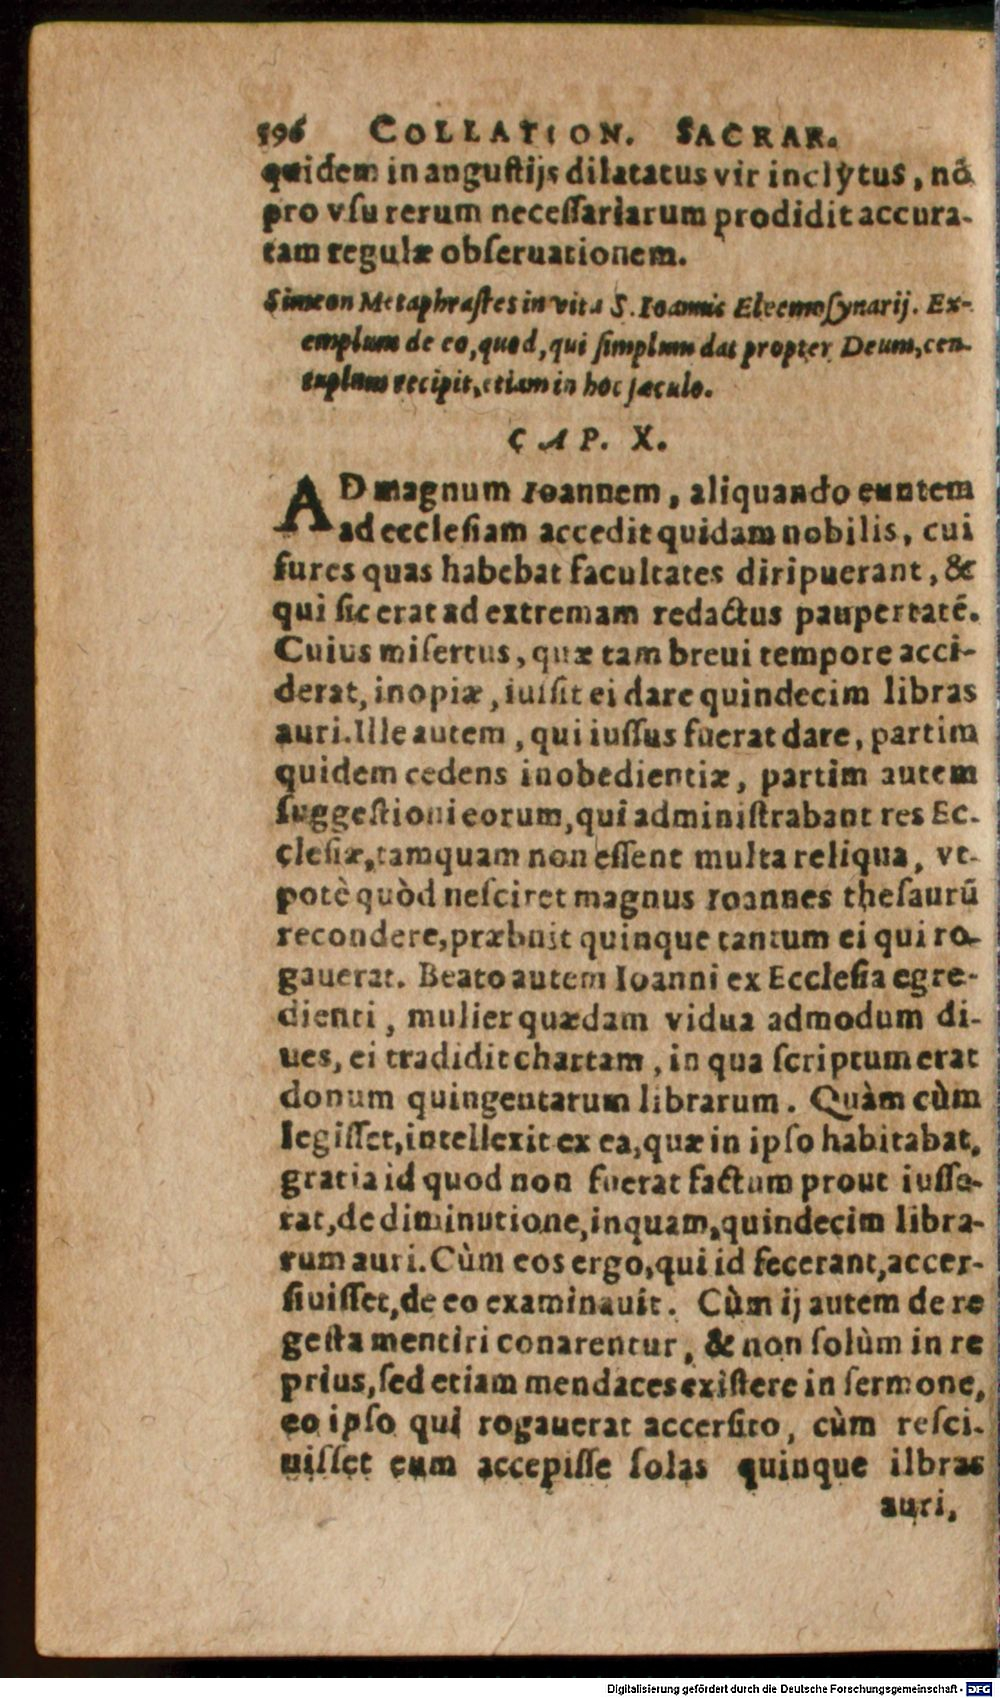 596 COLLATION. SACRAR.
quidem in angustijs dilatatus vir inclytus, nō
pro vsu rerum necessariarum prodidit accura-
tam regulæ obseruationem.
Simeon Metaphrastes in vita S. Ioannis Eleemosynarij. Ex-
emplum de eo, quod, qui simplum dat propter Deum, cen-
tuplum recipit, etiam in hoc sæculo.
CAP. X.
AD magnum Ioannem, aliquando euntem
ad ecclesiam accedit quidam nobilis, cui
fures quas habebat facultates diripuerant, &
qui sic erat ad extremam redactus paupertatē.
Cuius misertus, quæ tam breui tempore acci-
derat, inopiæ, iussit ei dare quindecim libras
auri. Ille autem, qui iussus fuerat dare, partim
quidem cedens inobedientiæ, partim autem
suggestioni eorum, qui administrabant res Ec-
clesiæ, tamquam non essent multa reliqua, vt-
potè quòd nesciret magnus Ioannes thesaurū
recondere, præbuit quinque tantum ei qui ro-
gauerat. Beato autem Ioanni ex Ecclesia egre-
dienti, mulier quædam vidua admodum di-
ues, ei tradidit chartam, in qua scriptum erat
donum quingentarum librarum. Quàm cùm
legisset, intellexit ex ea, quæ in ipso habitabat,
gratia id quod non fuerat factum prout iusse-
rat, de diminutione, inquam, quindecim libra-
rum auri. Cùm eos ergo, qui id fecerant, accer-
siuisset, de eo examinauit. Cùm ij autem de re
gesta mentiri conarentur, & non solùm in re
prius, sed etiam mendaces existere in sermone,
eo ipso qui rogauerat accersito, cùm resci-
uisset eum accepisse solas quinque ilbras
auri,
Digitalisierung gefördert durch die Deutsche Forschungsgemeinschaft - DFG